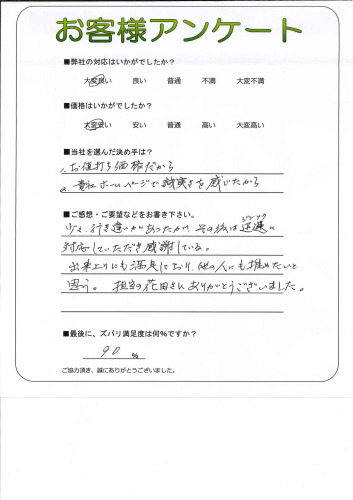 お客様アンケート
■弊社の対応はいかがでしたか？
大変良い 良い 普通 不満 大変不満
■価格はいかがでしたか？
大変安い 安い 普通 高い 大変高い
■当社を選んだ決め手は？
1. お値打ち価格だから
2. 貴社ホームページで誠実さを感じたから
■ご感想・ご要望などをお書き下さい。
少々、行き違いがあったが、その後は迅速に
対応していただき感謝している。
出来上りにも満足しており、他の人にも推めたいと
思う。 担当の花田さんありがとうございました。
■最後に、ズバリ満足度は何%ですか？
90 %
ご協力頂き、誠にありがとうございました。